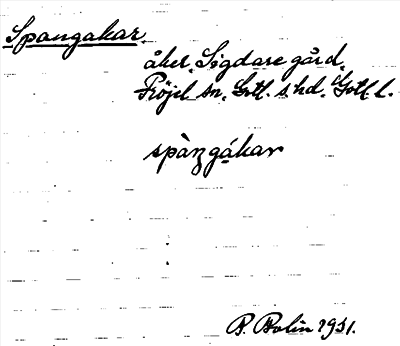 Spangakar.
åker, Sigdare gård,
Fröjel sn. Gotl. s. hd. Gotl. l.
spàŋgákar
B. Bolin 1931.